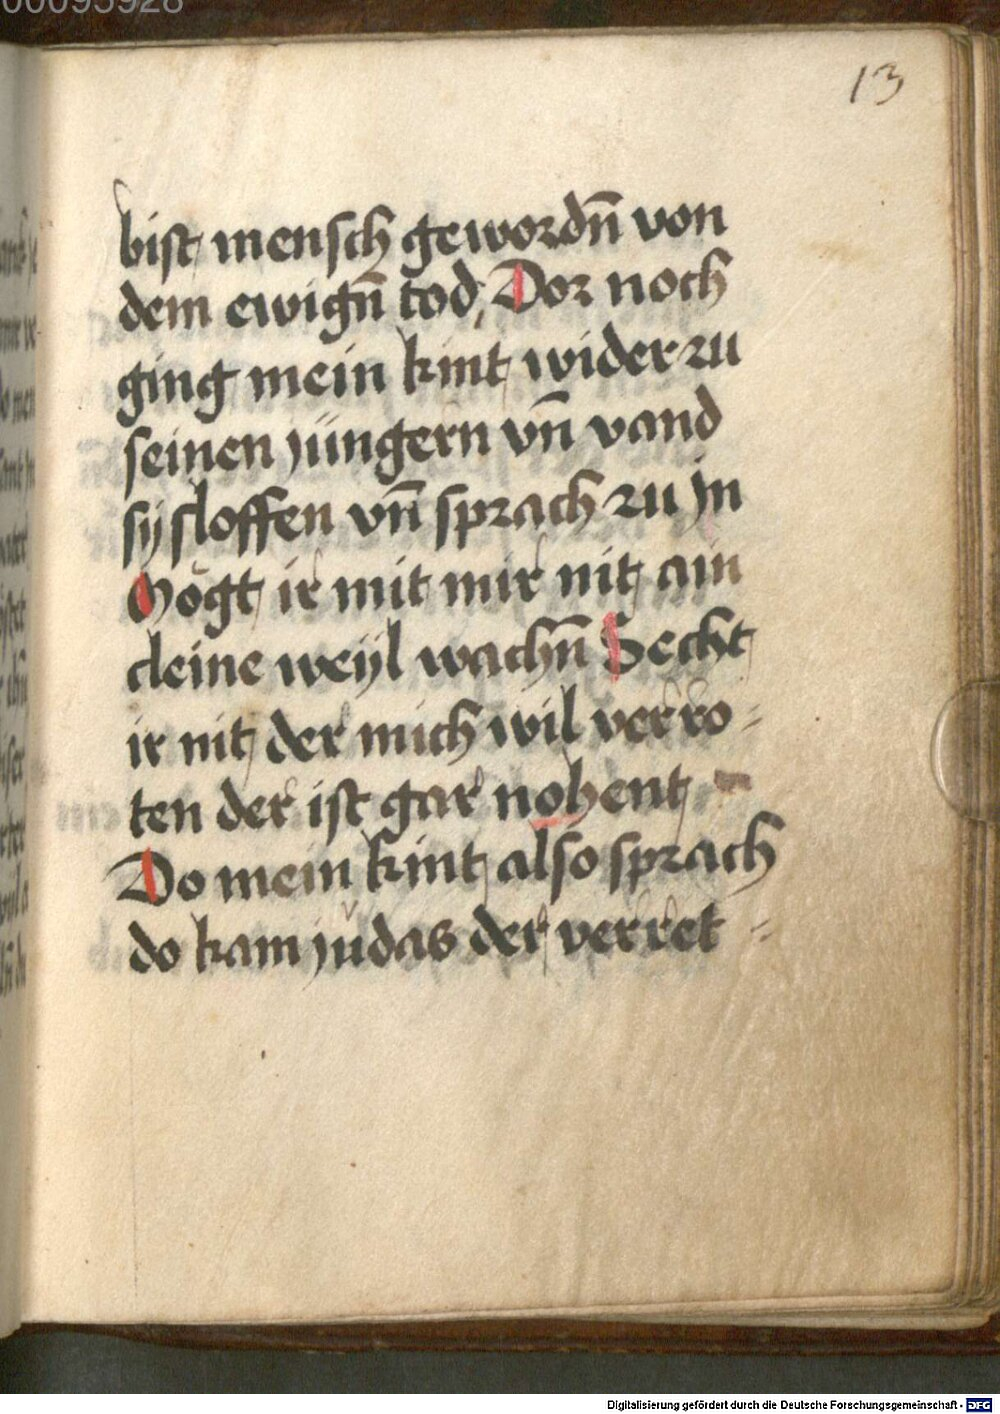 00095928
13
bist mensch gewordn̄ von
dem ewign̄ tod, Dor noch
ging mein kint wider zu
seinen jüngern vn̄ vand
sÿ sloffen vn̄ sprach zu jn
Mögt ir mit mir nit ain
cleine weÿl wachn̄ Secht
ir nit der mich wil verro=
ten der ist gar nohent
Do mein kint also sprach
do kam judas der verret=
Digitalisierung gefördert durch die Deutsche Forschungsgemeinschaft - DFG